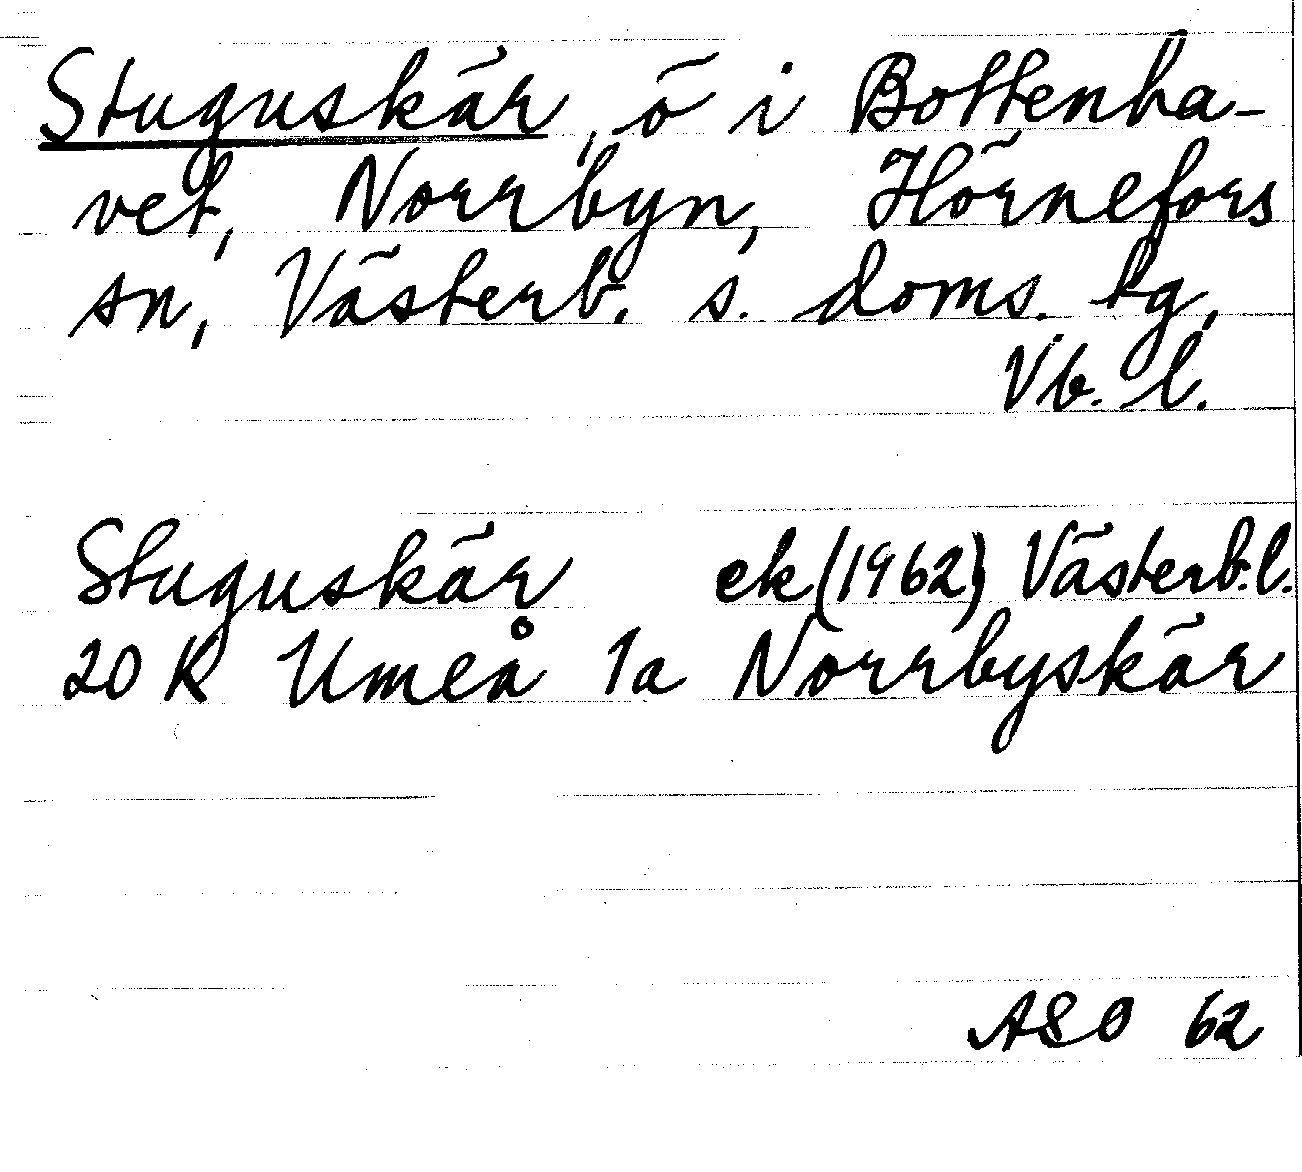 Stuguskär, ö i Bottenha-
vet, Norrbyn, Hörnefors
sn, Västerb. s. doms. tg,
Vb. l.
Stuguskär ek (1962) Västerb. l.
20 K Umeå 1a Norrbyskär
ASO 62